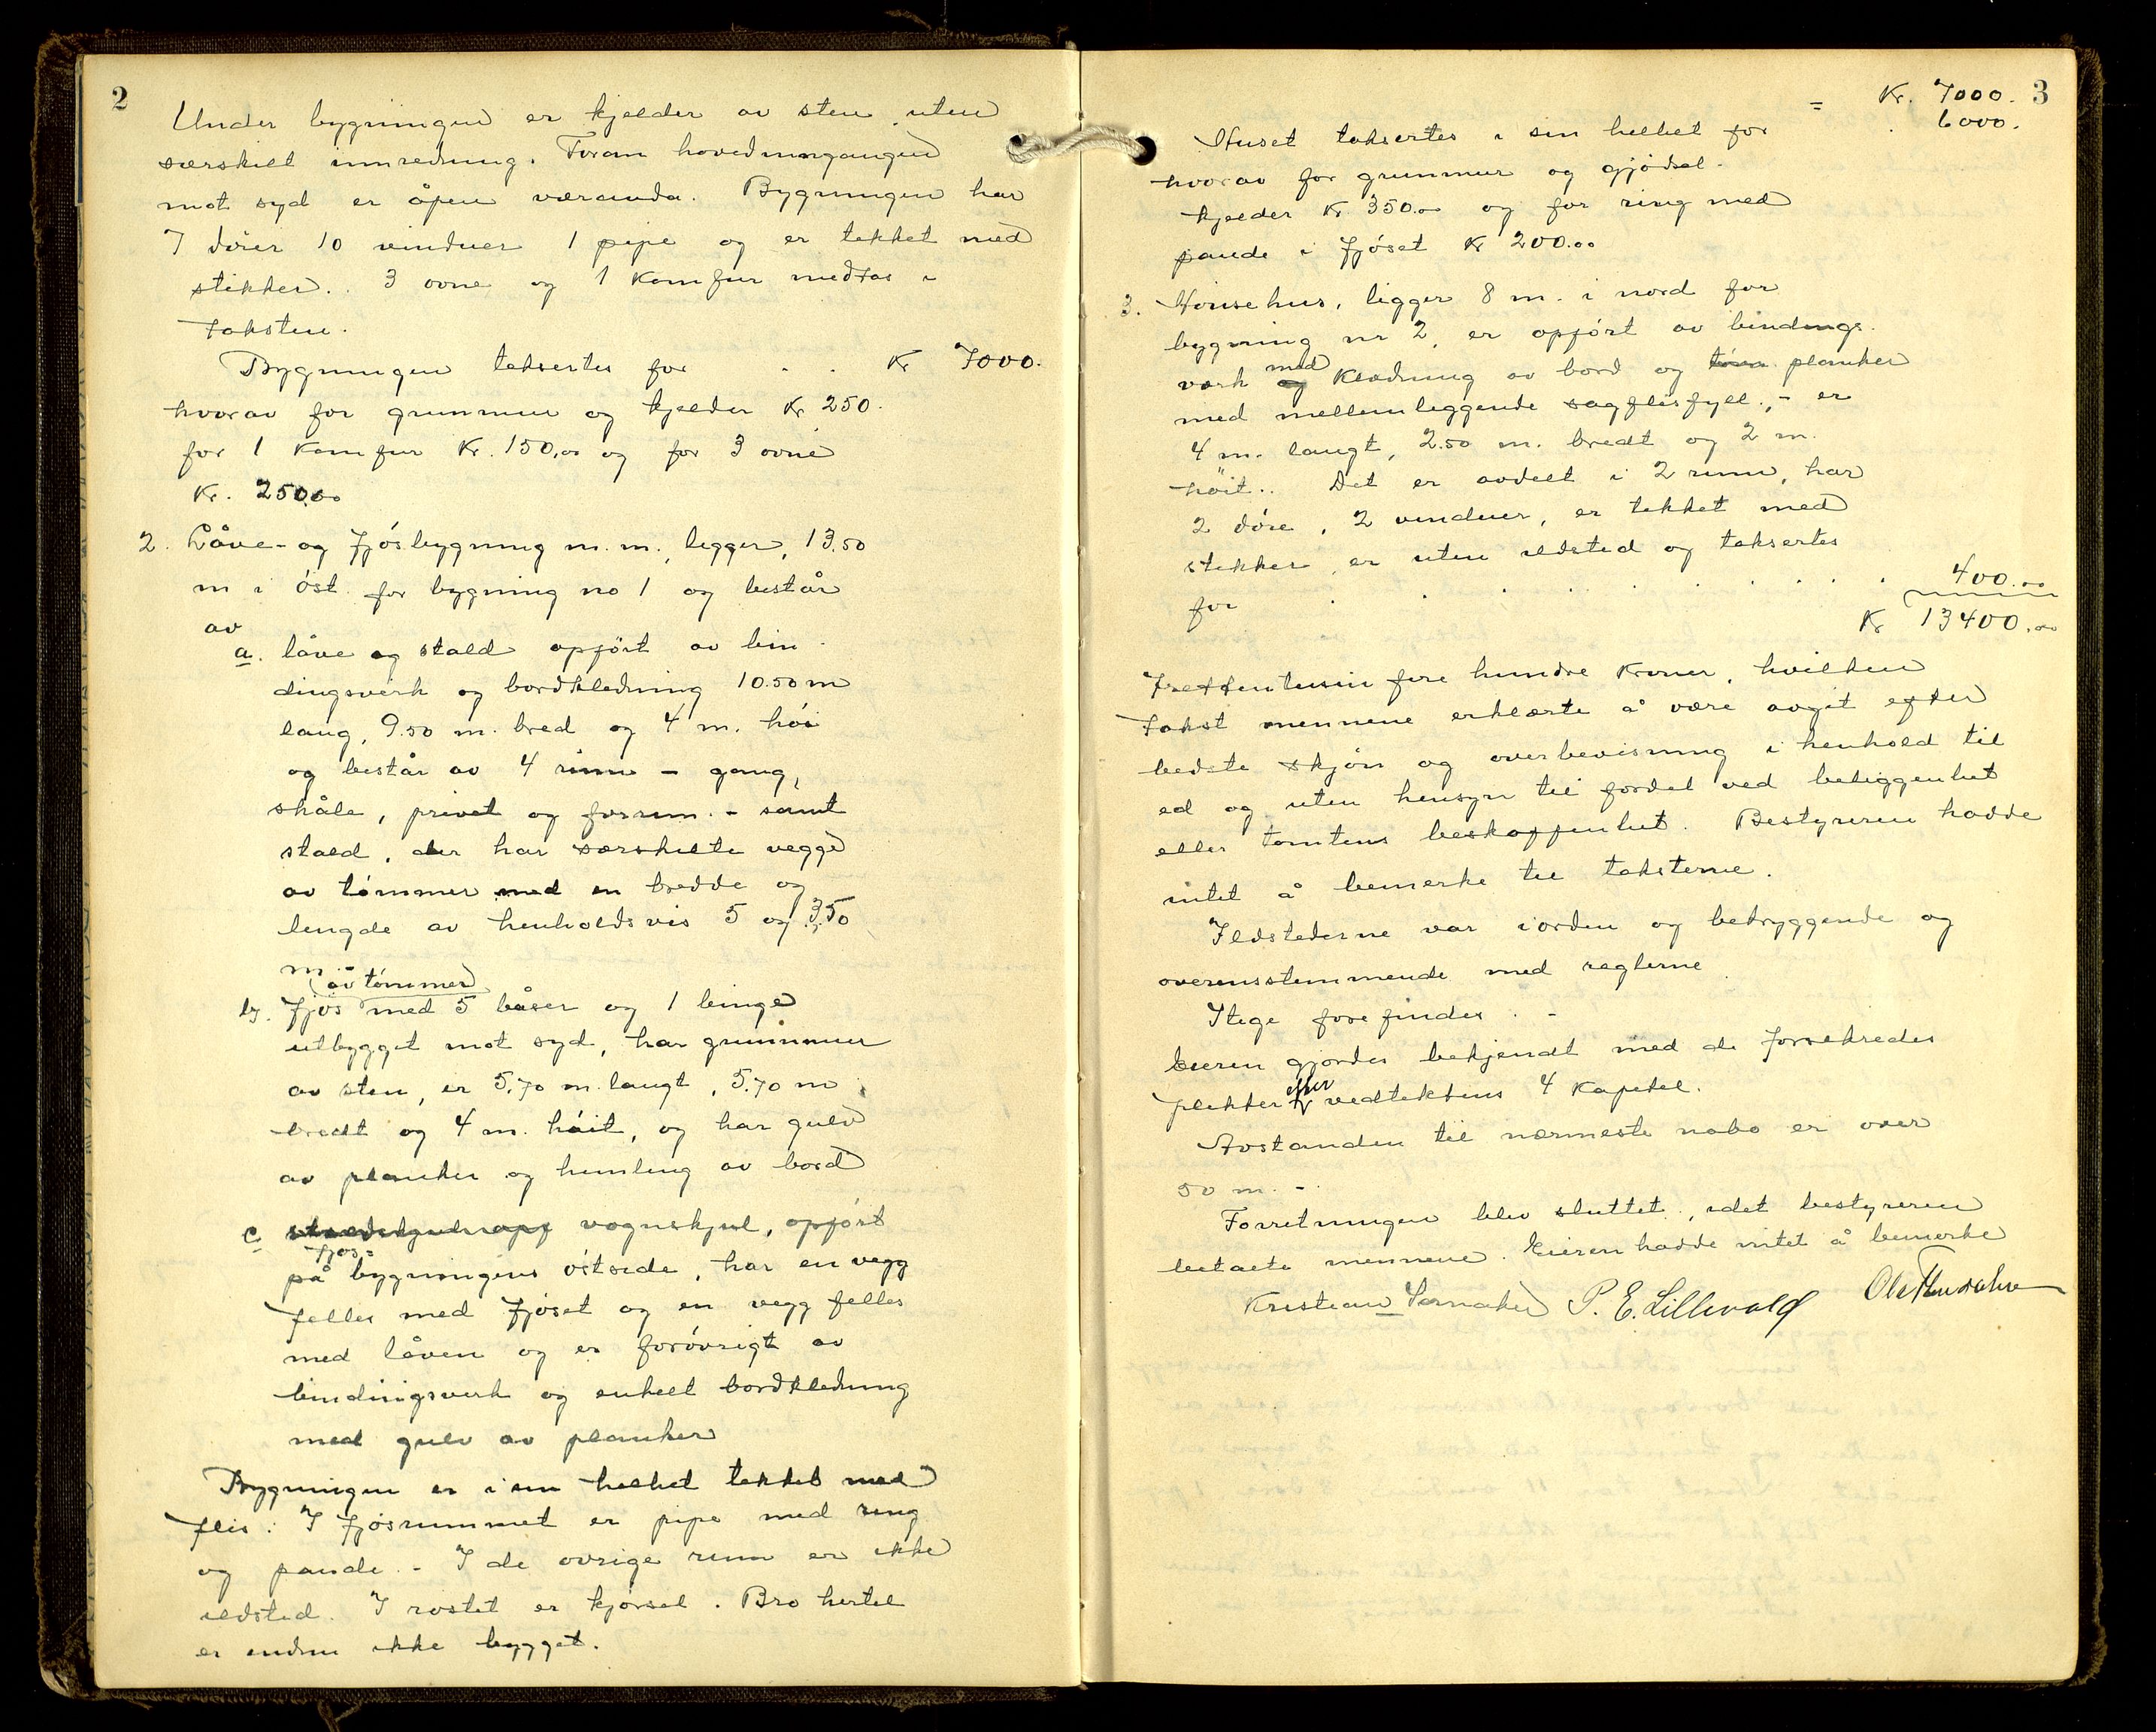 2
Under bygningen er kjelder av sten uten
særskilt innredning. Foran hovedinngangen
mot syd er åpen veranda. Bygningen har
7 dører 10 vinduer 1 pipe og er tekket med
stikker. 3 ovne og 1 komfur medtas i
taksten.
Bygningen taksertes for . . Kr 7000.
hvorav for grunnmur og kjelder Kr. 250.
for 1 komfur Kr. 150.00 og for 3 ovne
Kr. 250.00
2. Låve- og fjøsbygning m.m. ligger 13.50
m i øst for bygning no 1 og består
av
a. låve og stald opført av bin-
dingsverk og bordkledning 10.50 m
lang, 9.50 m. bred og 4 m. høi
og består av 4 rum - gang,
skåle, privet og forrum. - samt
stald, der har særskilte vegge
av tømmer med en bredde og
lengde av henholdsvis 5 og 3.50
m -
av tømmer
b. Fjøs med 5 båser og 1 binge
utbygget mot syd, har grunnmur
av sten, er 5.70 m. langt, 5.70 m
bredt og 4 m. høit, og har gulv
av planker og himling av bord
c. vognskjul, opført
fjøs-
på bygningens østside, har en vegg
felles med fjøset og en vegg felles
med låven og er forøvrigt av
bindingsverk og enkelt bordkledning
med gulv av planker
Bygningen er i sin helhet tekket med
flis. I fjøsrummet er pipe med ring
og pande. - I de øvrige rum er ikke
ildsted. I rostet er kjørsel. Bro hertil
er endnu ikke bygget.
3
= Kr. 7000.
6000.
Huset taksertes i sin helhet for
hvorav for grunnmur og gjødsel-
kjelder Kr 350.00 og for ring med
pande i fjøset Kr 200.00
3. Hønsehus, ligger 8 m. i nord for
bygning nr 2, er opført av bindings-
verk og med klædning av bord og planker
med mellemliggende sagflisfyll., - er
4 m. langt, 2.50 m. bredt og 2 m.
høit. Det er avdelt i 2 rum, har
2 døre, 2 vinduer, er tekket med
stikker, er uten ildsted og taksertes
for . . . . . . . . 400.00
Kr 13400.00
Trettentusin fire hundre kroner, hvilken
takst mennene erklærte å være avgit efter
bedste skjøn og overbevisning i henhold til
ed og uten hensyn til fordel ved beliggenhet
eller tomtens beskaffenhet. Bestyreren hadde
intet å bemerke til taksterne.
Ildstederne var i orden og betryggende og
overensstemmende med reglerne.
Stige forefindes. -
Eieren gjordes bekjendt med de forsikredes
plikter efter vedtektens 4 kapitel.
Avstanden til nærmeste nabo er over
50 m. -
Forretningen blev sluttet, idet bestyreren
betalte mennene. Eieren hadde intet å bemerke
Kristian P. E. Lillevold Ole